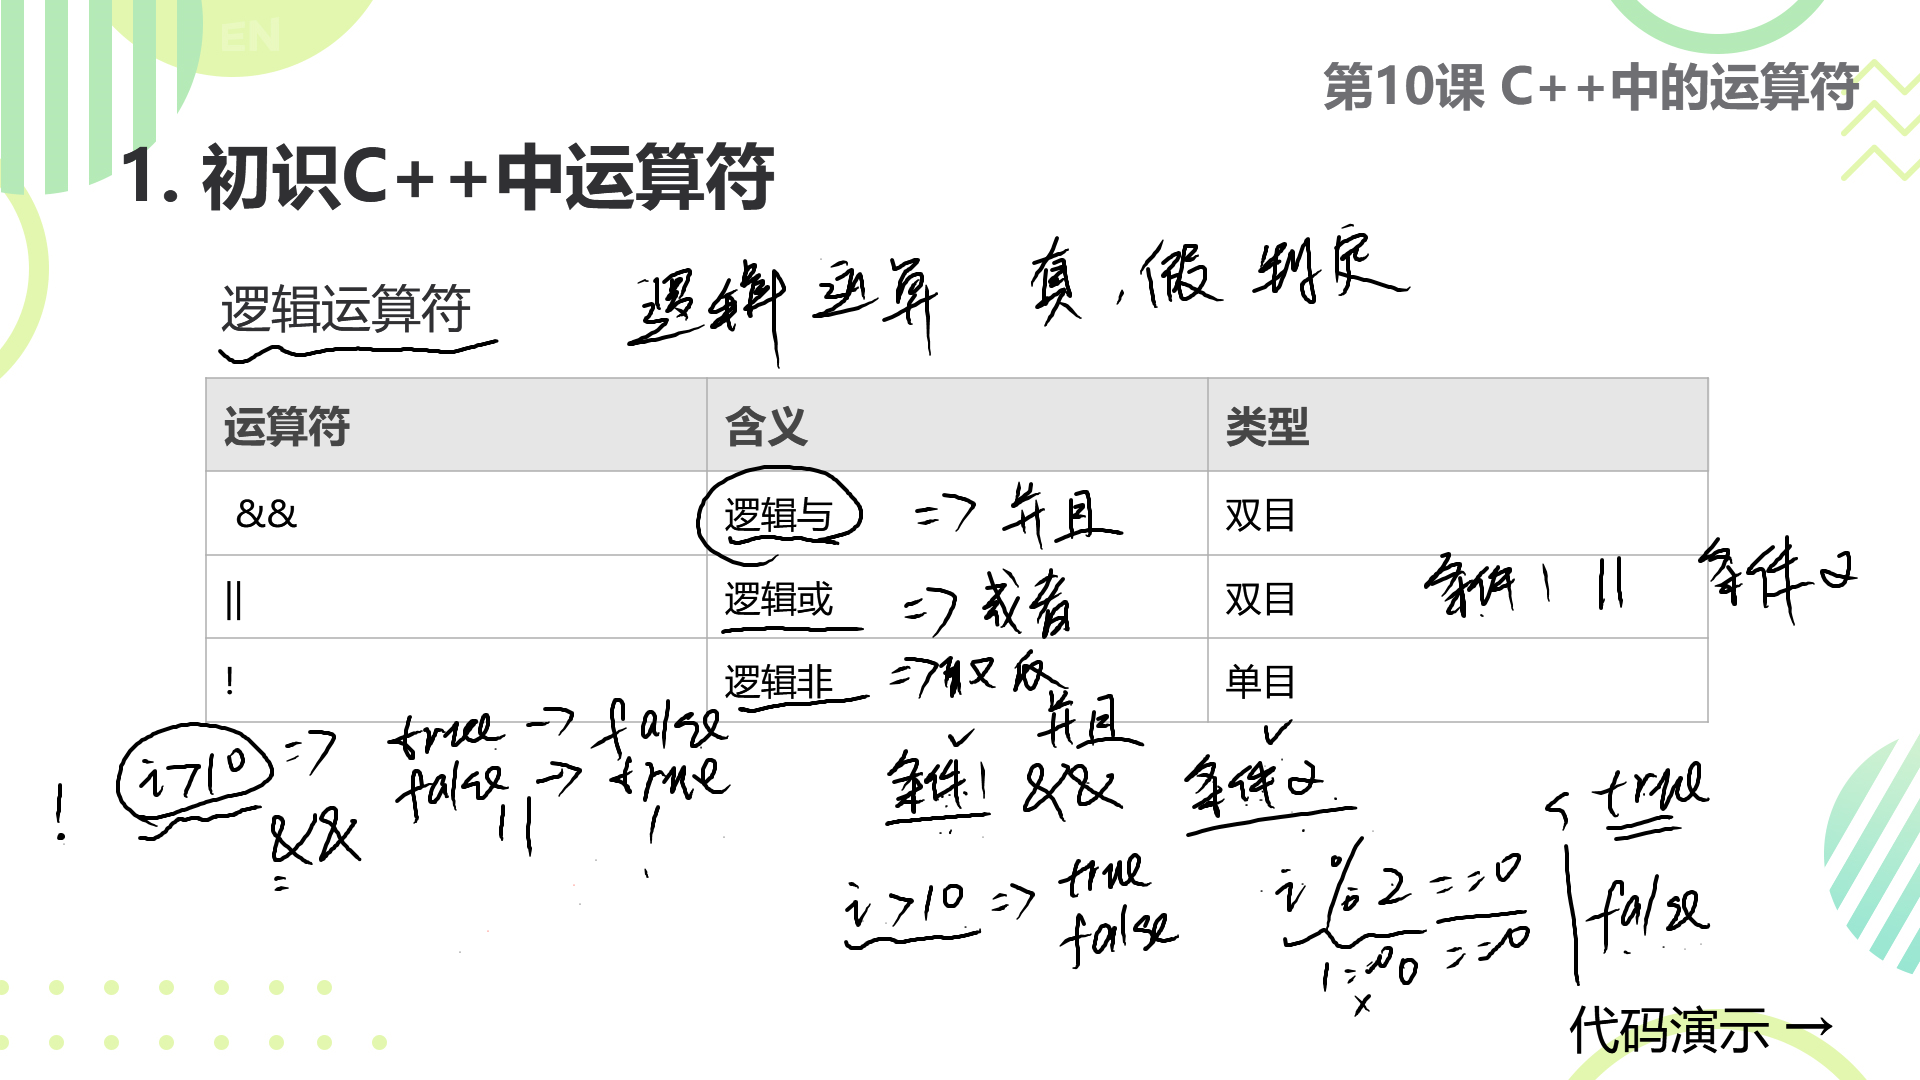 EN
第10课 C++中的运算符
1. 初识C++中运算符
逻辑运算符 逻辑运算 真,假 判定
运算符 含义 类型
&& 逻辑与 => 并且 双目
|| 逻辑或 => 或者 双目 条件1 || 条件2
! 逻辑非 => 取反 单目
! i>10 => true -> false
false -> true
&& || !
=
并且
条件1 && 条件2
i>10 => true
false
i%2 ==0
1==0 0 ==0
x
true
false
代码演示 →